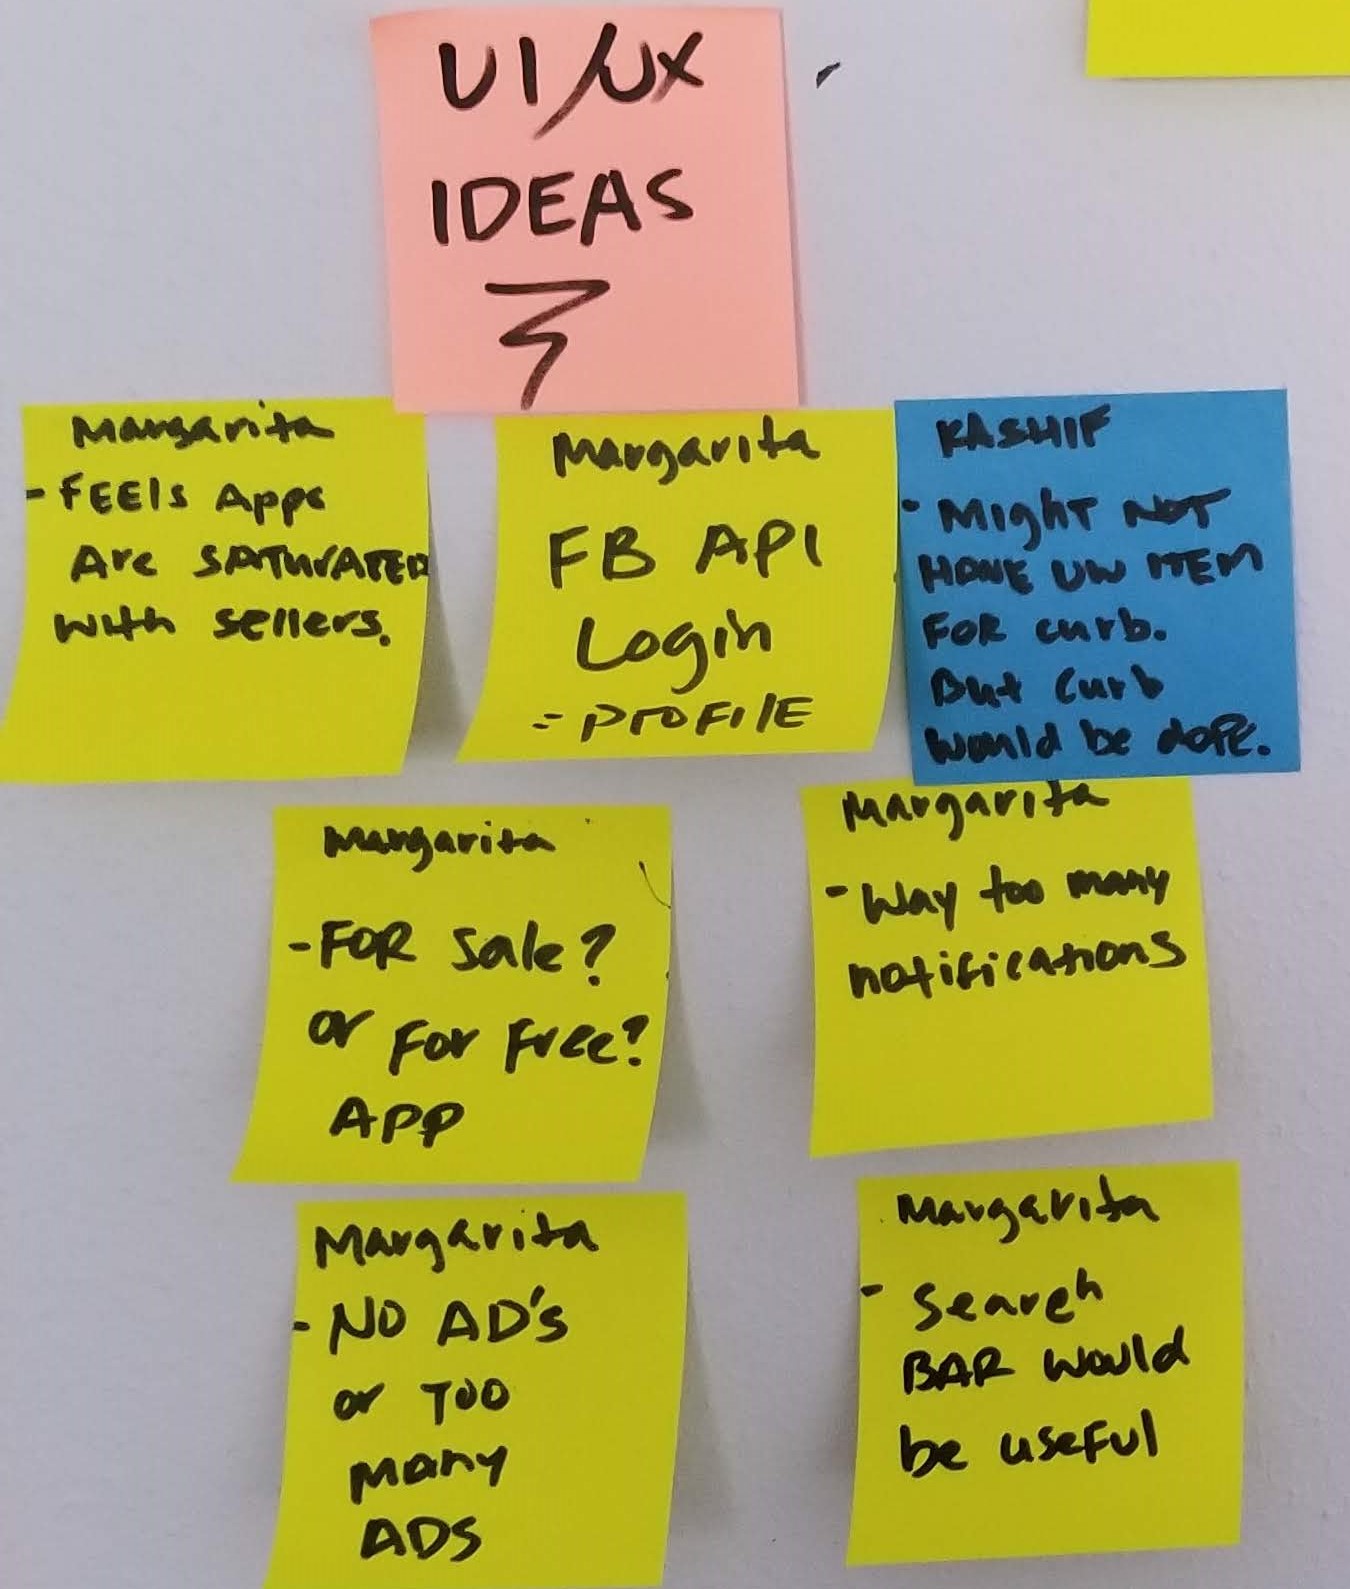 UI/UX
IDEAS
Margarita
- FEEls Apps
Are SATURATED
with sellers.
Margarita
FB API
Login
= PROFILE
KASHIF
- Might NOT
ITEM
FOR curb.
But Curb
would be dope.
Margarita
- FOR Sale?
or For Free?
APP
Margarita
- Way too many
notifications
Margarita
- NO AD's
or TOO
many
ADS
Margarita
- Search
BAR would
be useful